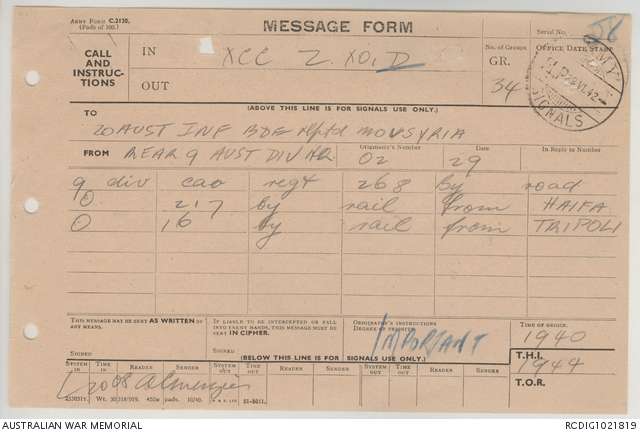 Army Form C.2130.
(Pads of 100.)
MESSAGE FORM
Serial No. 58
CALL AND INSTRUCTIONS
IN XCC Z. XO. D
OUT
No. of Groups
GR. 34
OFFICE DATE STAMP
ARMY
SIGNALS
(ABOVE THIS LINE IS FOR SIGNALS USE ONLY.)
TO
20 AUST INF BDE Rptd MOVSYRIA
FROM REAR 9 AUST DIV HQ
Originator's Number 02
Date 29
In Reply to Number
9 div cav regt 268 by road
0 217 by rail from HAIFA
0 16 by rail from TRIPOLI
THIS MESSAGE MAY BE SENT AS WRITTEN BY ANY MEANS.
SIGNED
IF LIABLE TO BE INTERCEPTED OR FALL INTO ENEMY HANDS, THIS MESSAGE MUST BE SENT IN CIPHER.
SIGNED
ORIGINATOR'S INSTRUCTIONS
DEGREE OF PRIORITY
IMPORTANT
TIME OF ORIGIN
1940
T.H.I.
1944
T.O.R.
(BELOW THIS LINE IS FOR SIGNALS USE ONLY.)
SYSTEM IN TIME IN READER SENDER SYSTEM OUT TIME OUT READER SENDER SYSTEM OUT TIME OUT READER SENDER
2008
AUSTRALIAN WAR MEMORIAL
RCDIG1021819